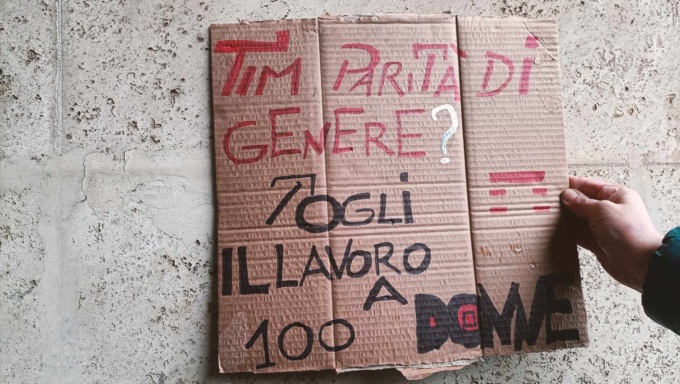 TIM PARITÀ DI
GENERE?
TOGLI
IL LAVORO
A
100 DONNE